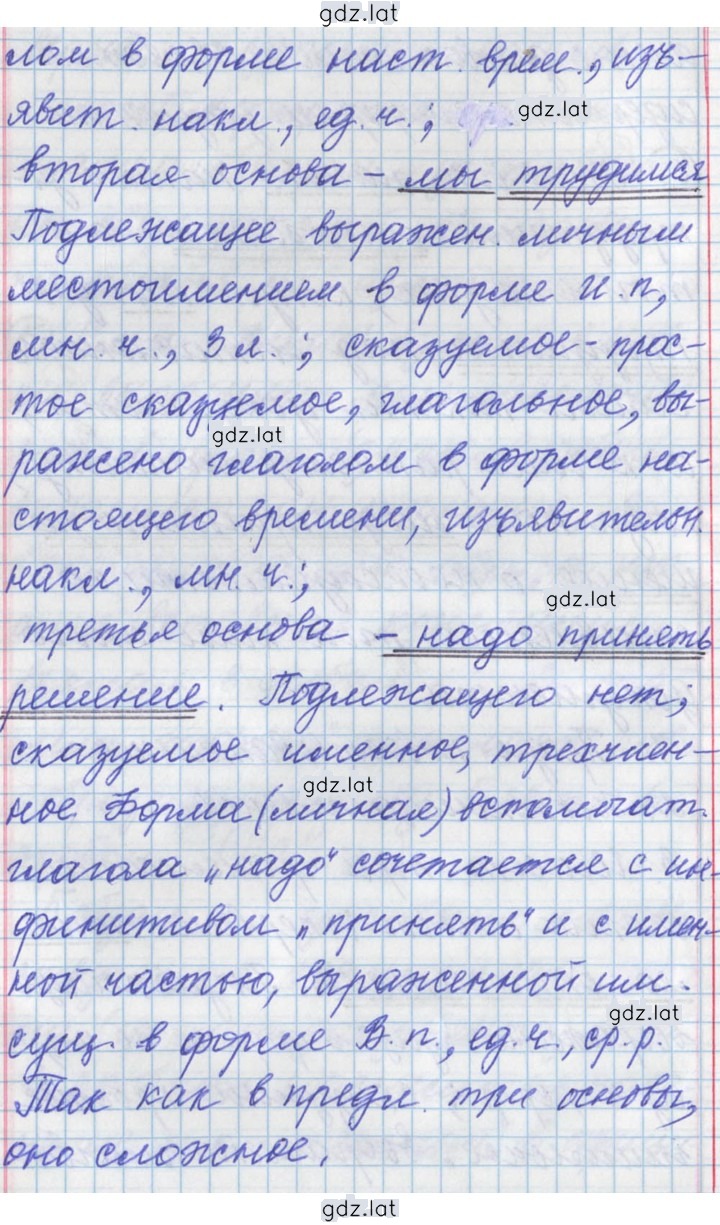 gdz.lat
лом в форме наст. врем., изъ-
явит. накл., ед. ч.;
gdz.lat
вторая основа – мы трудимся
Подлежащее выражен. личным
местоимением в форме И. п,
мн. ч., 3 л.; сказуемое - прос-
тое сказуемое, глагольное, вы-
gdz.lat
ражено глаголом в форме на-
стоящего времени, изъявительн.
накл., мн. ч.;
gdz.lat
третья основа – надо принять
решение. Подлежащего нет;
сказуемое именное, трехчлен-
gdz.lat
ное Форма (личная) вспомогат.
глагола „надо" сочетается с ин-
финитивом „принять" и с имен-
ной частью, выраженной им.
gdz.lat
сущ. в форме В. п., ед. ч., ср. р.
Так как в предл. три основы,
оно сложное.
gdz.lat